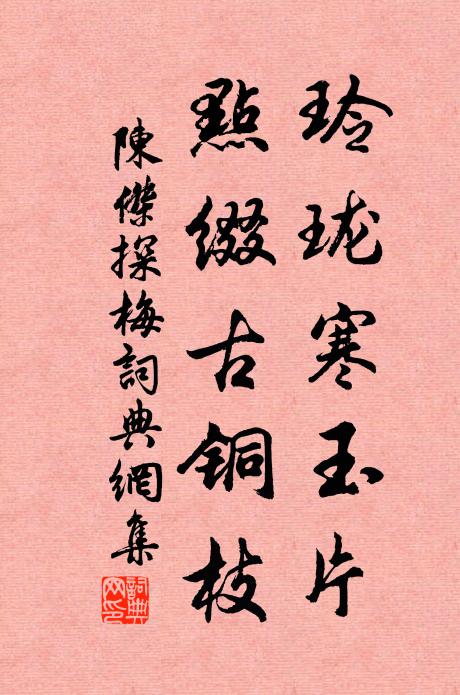 玲珑寒玉片
點缀古铜枝
陳傑探梅詞典網集
詞典网印